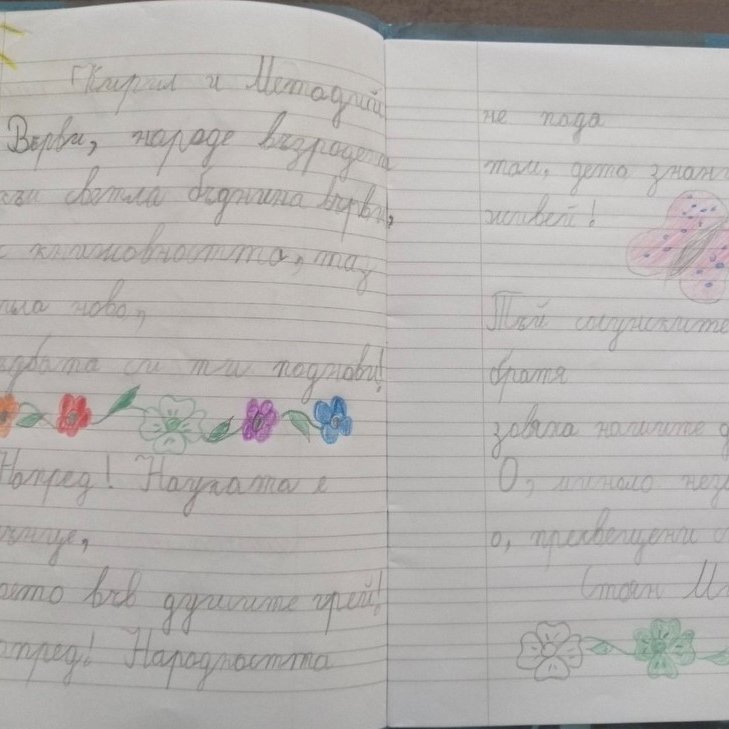 "Кирил и Методий
Върви, народе възродени
към светла бъднина върви,
с книжовността, таз
сила нова,
съдбата си ти поднови!
Напред! Науката е
слънце,
което във душите грей!
Напред! Народността
не пада
там, дето знань
живей!
Тъй солунските
братя
зовяха нашите д
О, минало нез
о, пресвещени с
Стоян М